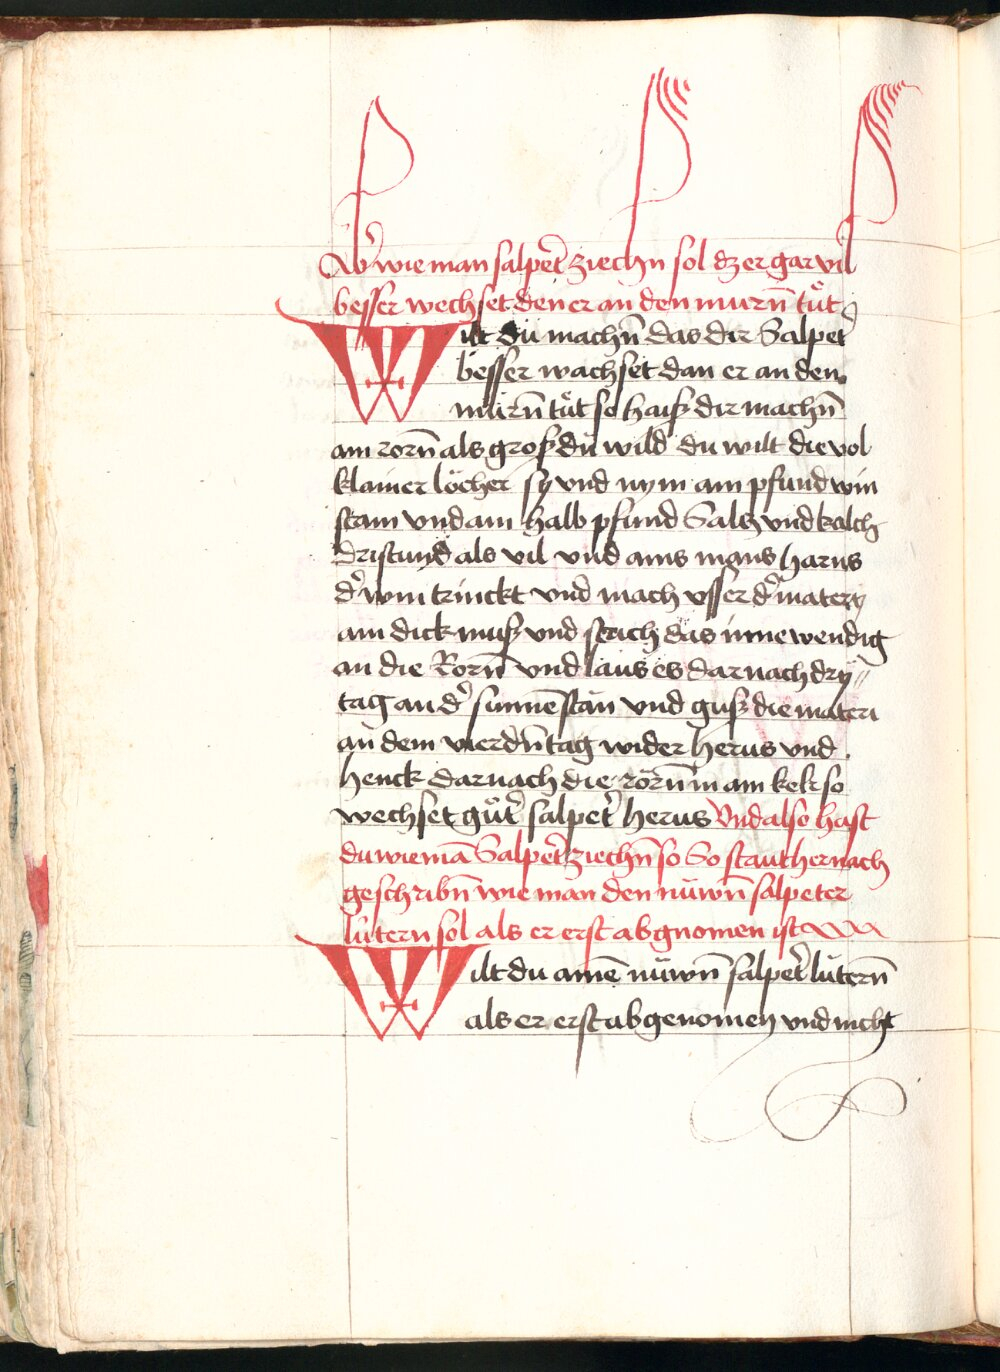 Ab̾ wie man salpet̾ ziechn sol dz er gar vil
besser wechset den er an den murn̄ tůt
Wilt du machn̄ das dir Salpet̾
besser wachset dan er an den
murn̄ tůt so haiß dir machn̄
ain rorn̄ als groß du wild du wilt die vol
klainer löcher sy vnd nym ain pfund win
stain vnd ain halb pfund Saltz vnd kalch
dristund als vil vnd ains mans harns
d̾ win trinckt vnd mach vsser d̾ matery
ain dick muß vnd strich das innewendig
an die Rorn̄ vnd laus es darnach dry
tag an d̾ sunnē stan vnd guß die materi
an dem vierdn̄ tag wider herus vnd
henck darnach die rörn̄ in ain kelr so
wechset gůt̾ salpet̾ herus Vnd also hast
du wie mā Salpet̾ ziechn̄ so So staut hernach
geschribn̄ wie man den nüwn̄ salpeter
lütern sol als er erst abgnomen ist
Wilt du ainē nüwn̄ salpet̾ lütern̄
als er erst abgenomen vnd nicht